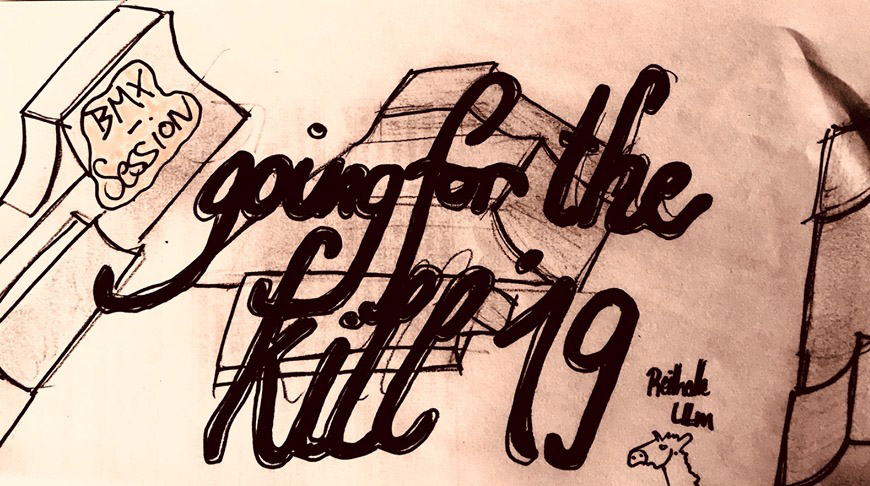 BMX
-
Session
going for the
kill '19
Reithalle
Ulm